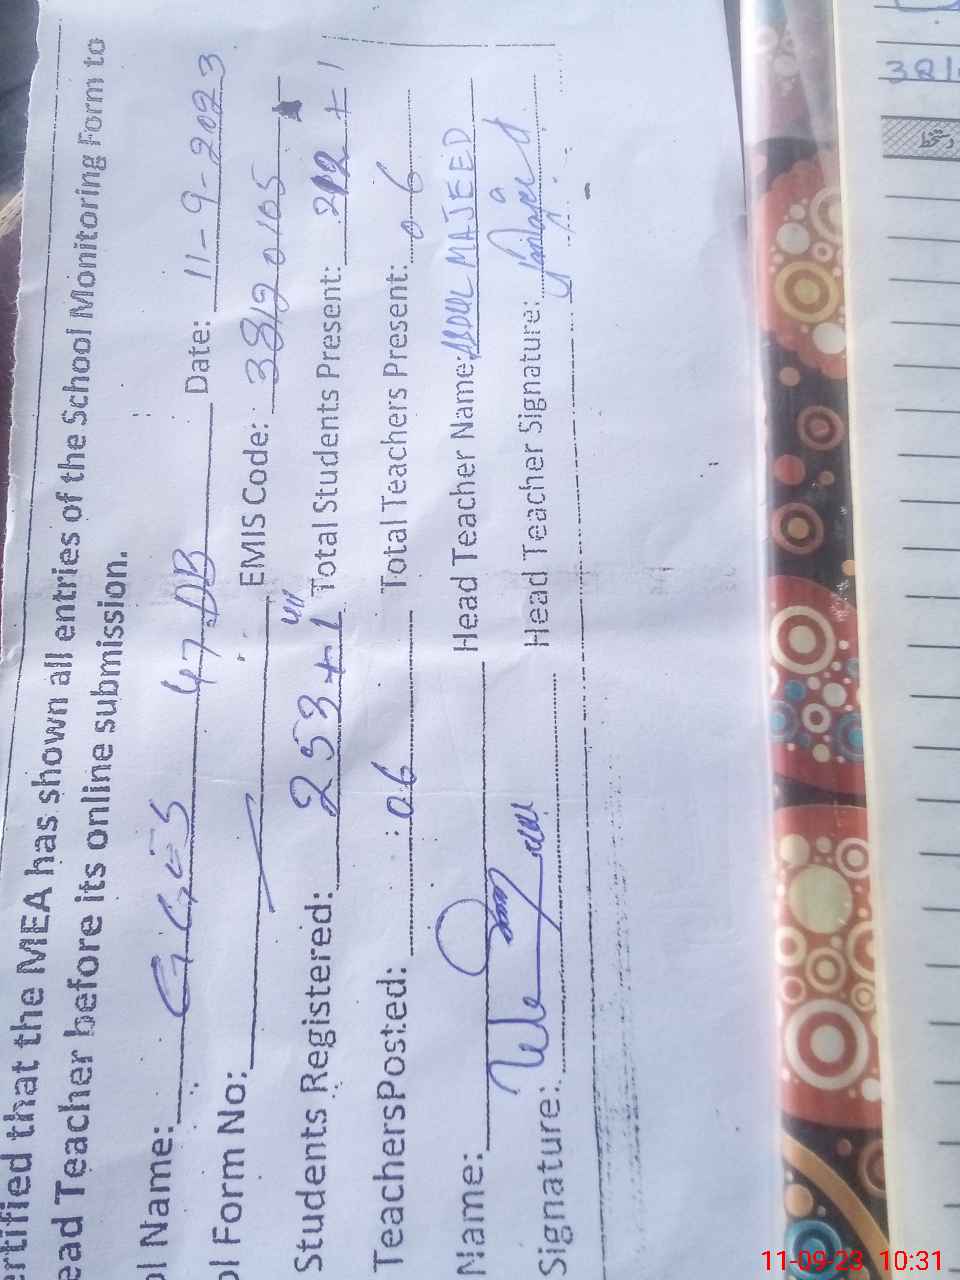 ertified that the MEA has shown all entries of the School Monitoring Form to
ead Teacher before its online submission.
ol Name: GGES 47 DB Date: 11-9-2023
ol Form No: EMIS Code: 38120105
Students Registered: 253+1 Total Students Present: 212+1
TeachersPosted: 06 Total Teachers Present: 06
Name: Head Teacher Name: ABDUL MAJEED
Signature: Head Teacher Signature:
381
دستخط
11-09-23 10:31